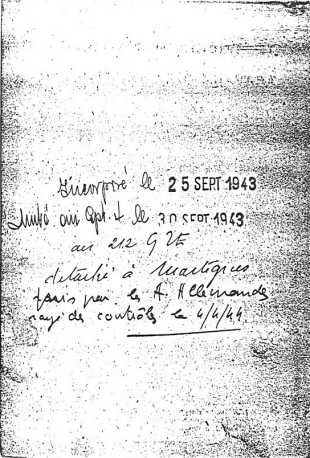 Incorporé le 25 SEPT 1943
au Gpt. 4 le 30 SEPT 1943
au 212 G TE
détaché à Martigues
pris par les A. Allemandes
rayé des contrôles le 4/4/44